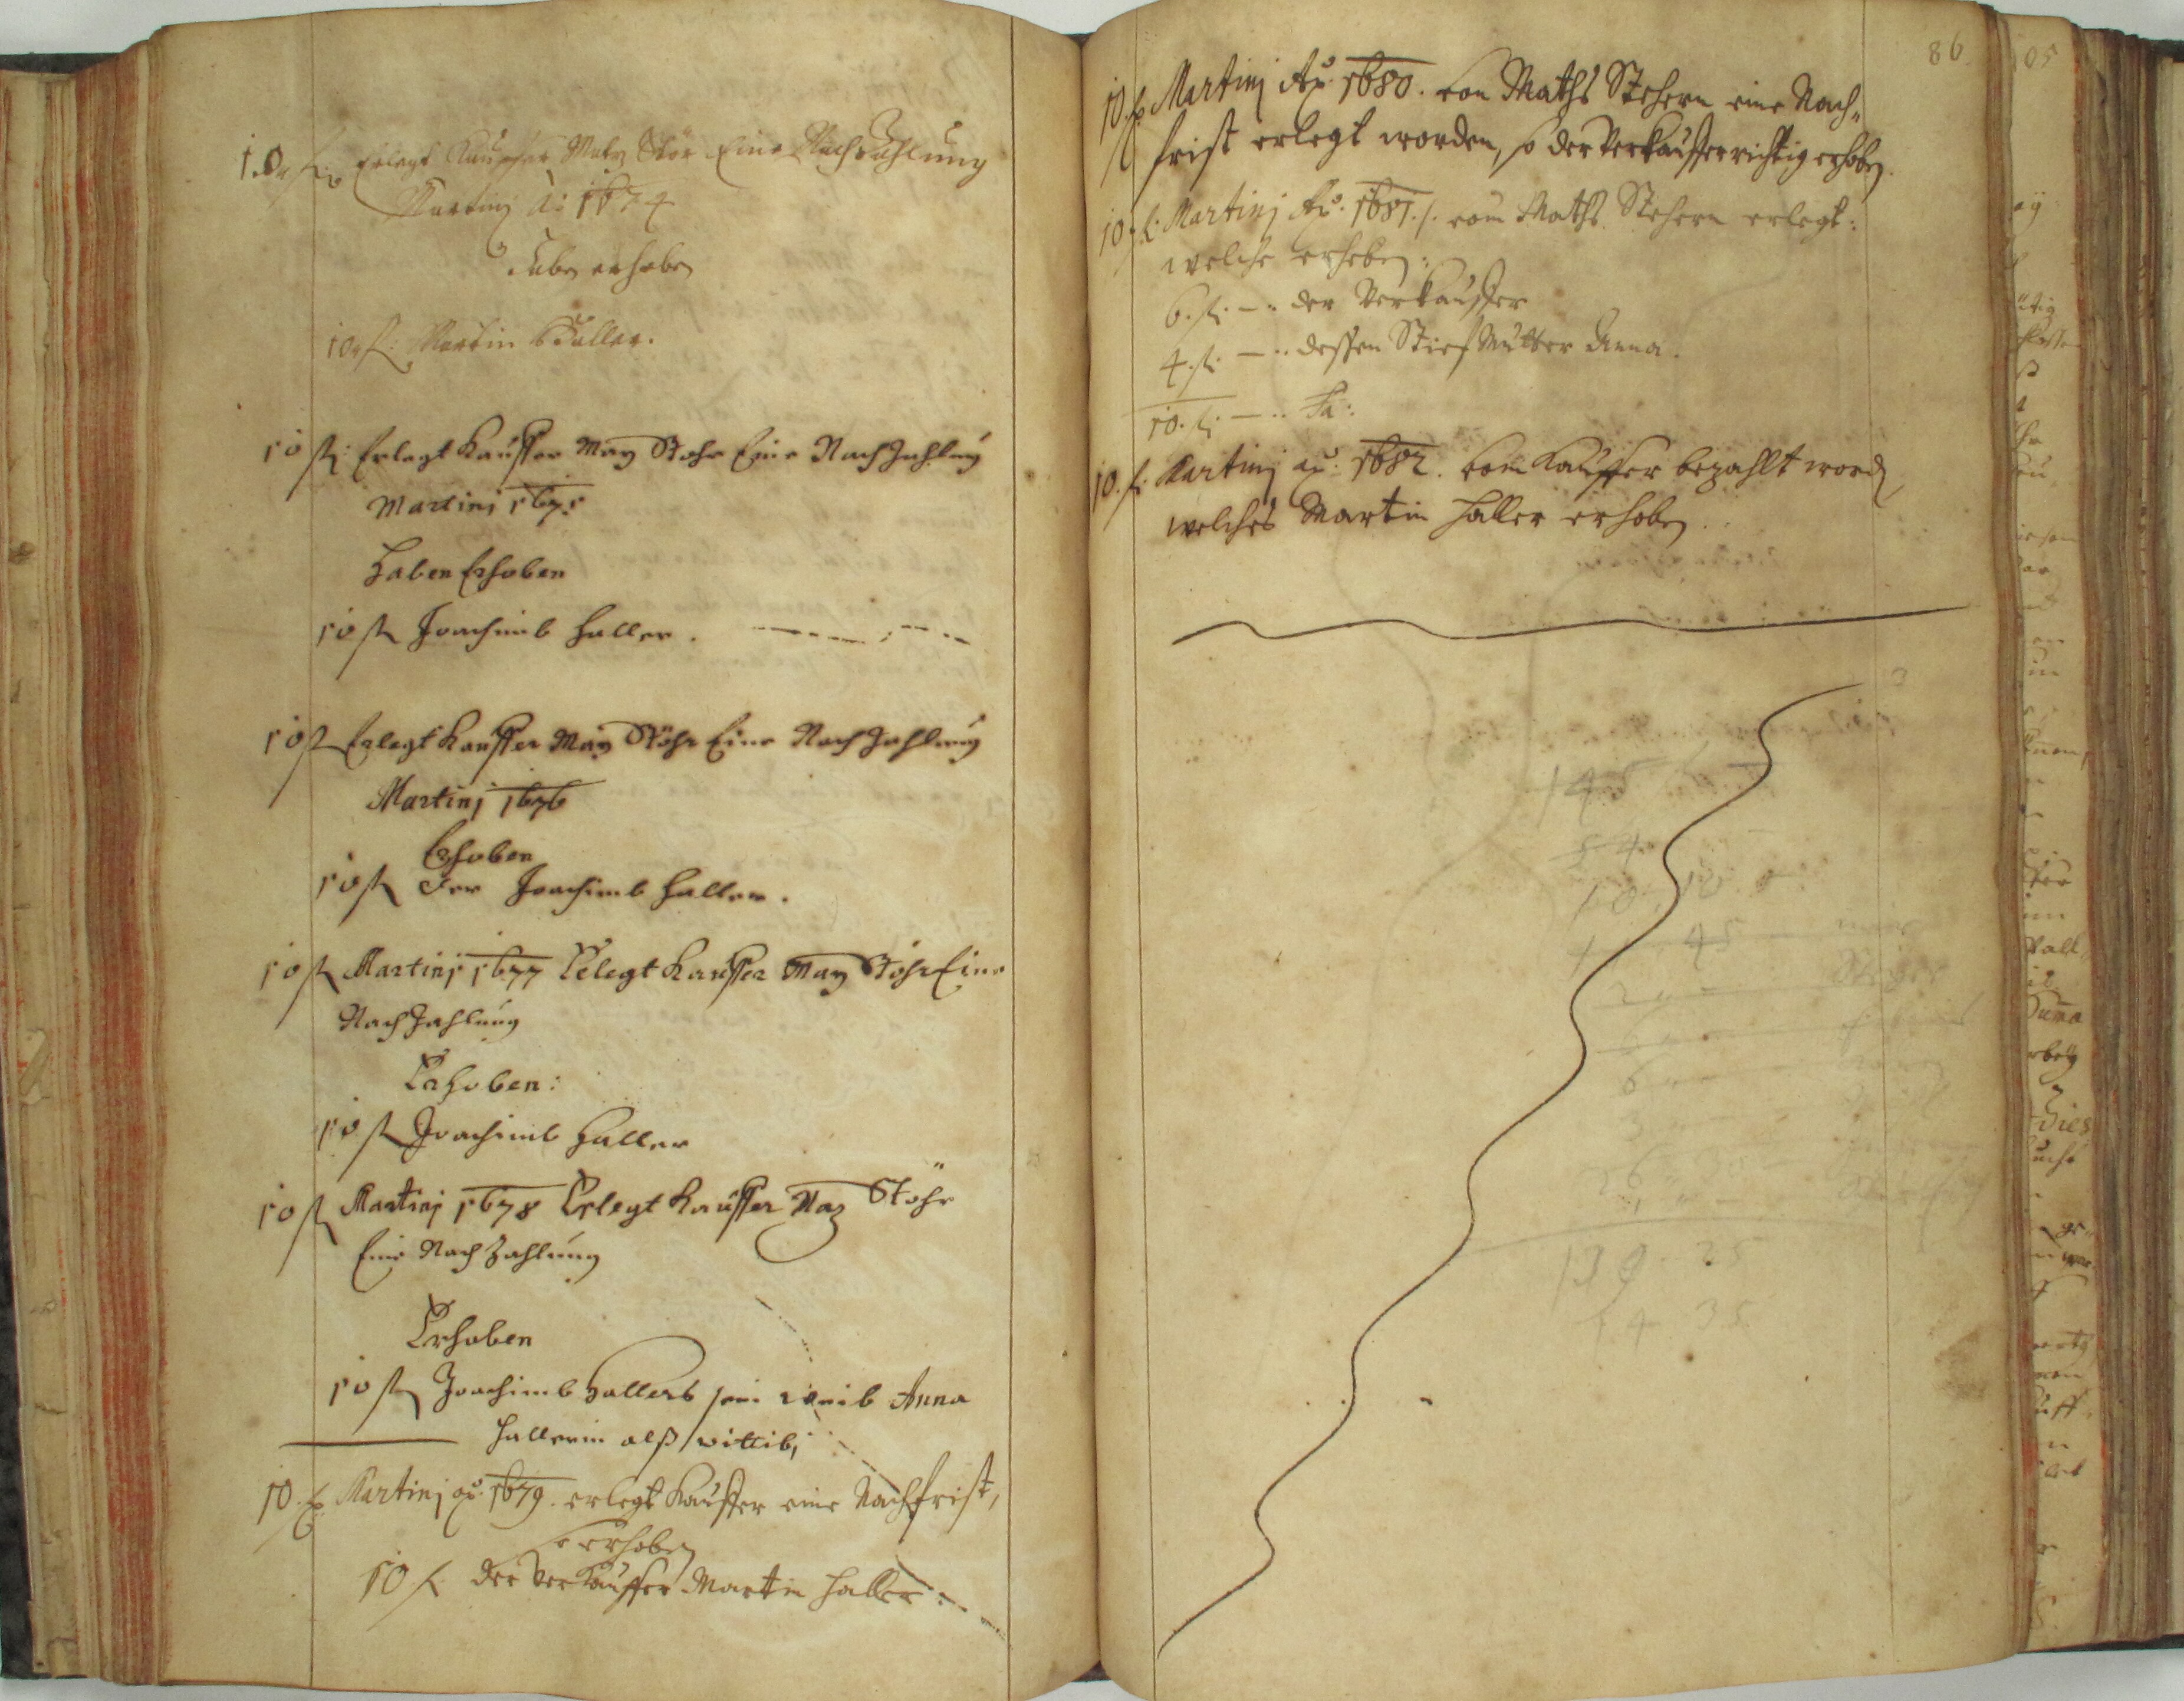 10 fl: Erlegt Kauffer Maty Stör Eine Nachzahlung
Martinj A: 1674
Haben erhoben
10 fl: Martin Haller.
10 fl: Erlegt Kauffer May Stohr Eine NachZahlung
Martinj 1675
Haben Erhoben
10 fl Joachimb Haller.
10 fl Erlegt Kauffer May Stöhr Eine NachZahlung
Martinj 1676
Erhoben
10 fl Der Joachimb Haller.
10 fl Martinj 1677 Erlegt Kauffer May Stöhr Eine
NachZahlung
Erhoben:
10 fl Joachimb Haller
10 fl Martinj 1678 Erlegt Kauffer May Stöhr
Eine NachZahlung
Erhoben
10 fl Joachimb Hallers sein weib Anna
Hallerin alß wittib,
10. fl. Martinj aō. 1679. erlegt Kauffer eine Nachfrist,
erhoben
10 fl. der Verkauffer Martin Haller.
86.
10. fl. Martinj Aō. 1680. von Maths Stehern eine Nach=
frist erlegt worden, so der Verkauffer richtig erhoben.
10. fl. Martinj Aō. 1681. vom Maths Stehern erlegt:
welche erheben:
6. fl. —: der Verkauffer
4. fl. —: dessen Stief Mutter Anna.
10. fl. —:
10. fl. Martinj aō: 1682. vom Kauffer bezahlt word
welches Martin Haller erhoben.
145
54
10
1 45
139 25
14 35